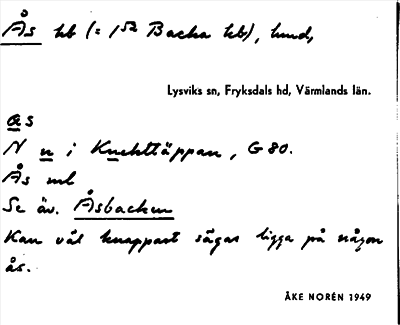 Ås hb (= 1 52 Backa hb), lund,
Lysviks sn, Fryksdals hd, Värmlands län.
ɑs
N n i Knekttäppan, G 80.
Ås ml
Se äv. Åsbacken
Kan väl knappast sägas ligga på någon
ås.
ÅKE NORÉN 1949